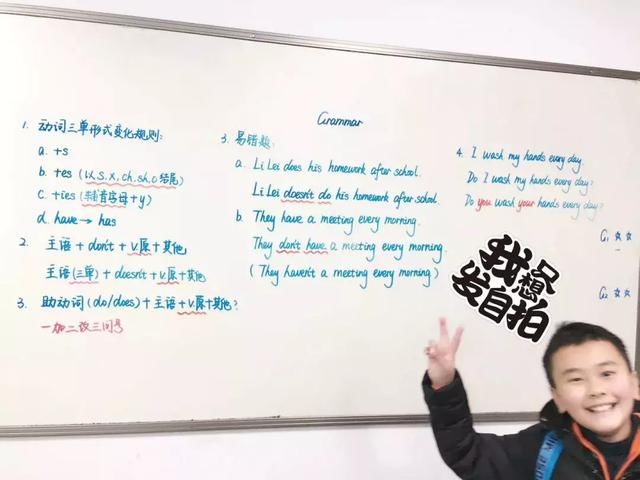 Grammar
1. 动词三单形式变化规则:
a. +s
b. +es (以s,x,ch,sh,o结尾)
c. +ies (辅音字母+y)
d. have → has
2. 主语+don't+V.原+其他
主语(三单)+doesn't+V.原+其他
3. 助动词(do/does)+主语+V.原+其他?
一加二改三问号
3. 易错题:
a. Li Lei does his homework after school.
Li Lei doesn't do his homework after school.
b. They have a meeting every morning.
They don't have a meeting every morning.
(They haven't a meeting every morning.)
4. I wash my hands every day.
Do I wash my hands every day?
Do you wash your hands every day?
G1 女女
一
G2 女女
我只想
发自拍